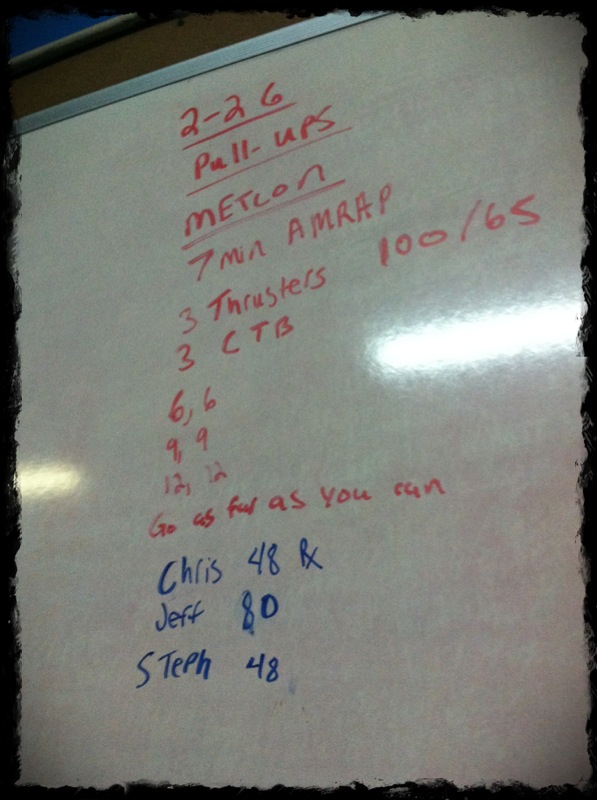 2-26
Pull-ups
METCON
7 min AMRAP
3 Thrusters 100/65
3 CTB
6, 6
9, 9
12, 12
Go as far as you can
Chris 48 Rx
Jeff 80
STeph 48